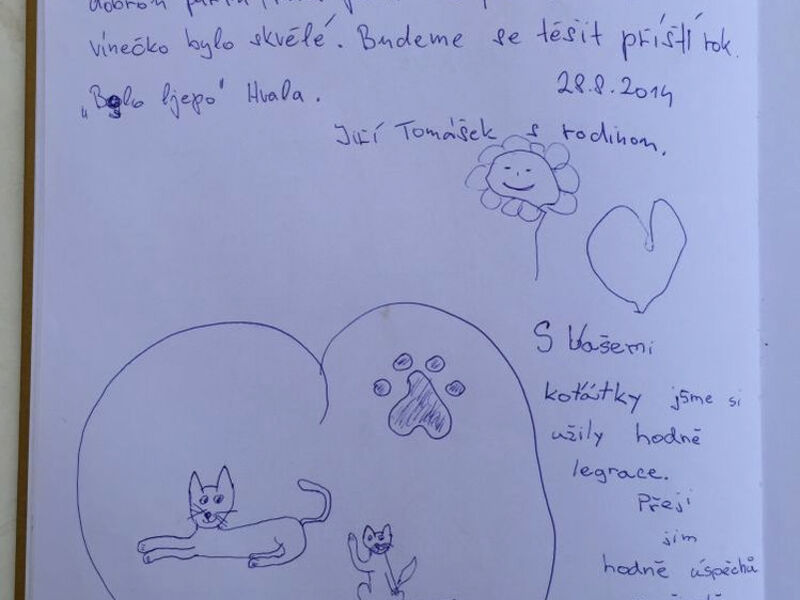 vínečko bylo skvělé. Budeme se těšit příští rok.
„Bylo ljepo" Hvala. 28.8.2014
Jiří Tomášek s rodinou.
S Vašemi
koťátky jsme si
užily hodně
legrace.
Přeji
jim
hodně úspěchů